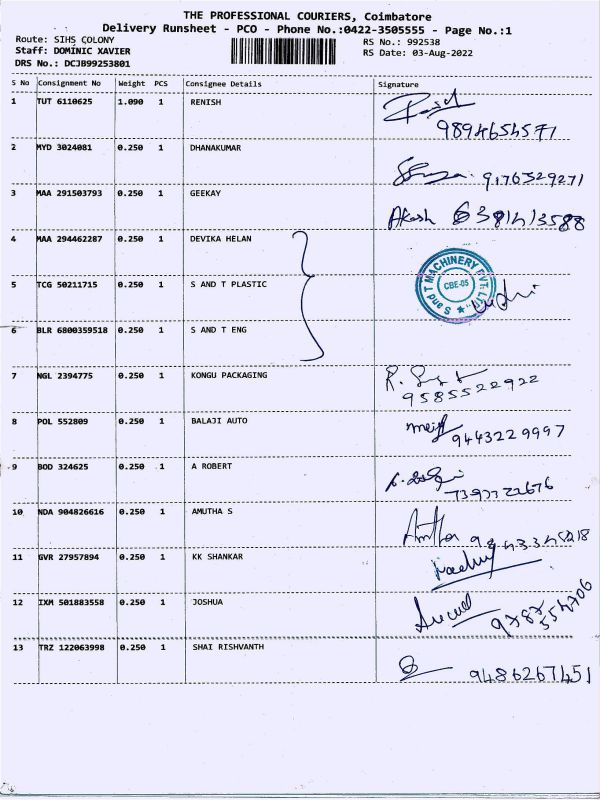 THE PROFESSIONAL COURIERS, Coimbatore
Delivery Runsheet - PCO - Phone No.:0422-3505555 - Page No.:1
Route: SIHS COLONY
RS No.: 992538
Staff: DOMINIC XAVIER
RS Date: 03-Aug-2022
DRS No.: DCJB99253801
S No Consignment No Weight PCS Consignee Details Signature
1 TUT 6110625 1.090 1 RENISH
9894654571
2 MYD 3024081 0.250 1 DHANAKUMAR
9176329271
3 MAA 291503793 0.250 1 GEEKAY
Akash 6381413588
4 MAA 294462287 0.250 1 DEVIKA HELAN
5 TCG 50211715 0.250 1 S AND T PLASTIC
S and T MACHINERY PVT. LTD.
CBE-05
6 BLR 6800359518 0.250 1 S AND T ENG
7 NGL 2394775 0.250 1 KONGU PACKAGING
9585522922
8 POL 552809 0.250 1 BALAJI AUTO
9443229997
9 BOD 324625 0.250 1 A ROBERT
10 NDA 904826616 0.250 1 AMUTHA S
Amtha
11 GVR 27957894 0.250 1 KK SHANKAR
12 IXM 501883558 0.250 1 JOSHUA
13 TRZ 122063998 0.250 1 SHAI RISHVANTH
9486267451